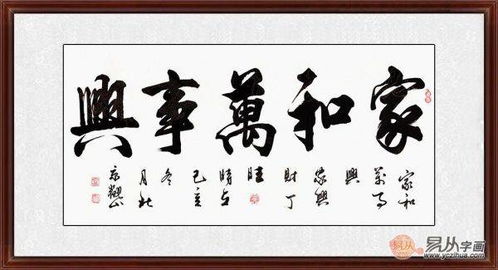 家和萬事興
家和
萬事
興
家興
財丁
旺
時在
己亥
冬
月北
京觀山
易从
易从字画
www.yczihua.com